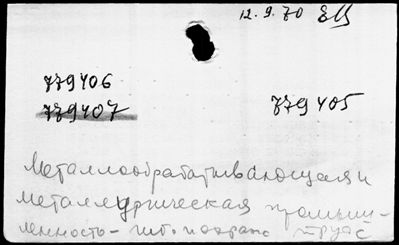 12.9.70
779406
779407
779405
Металлообрабатывающая и
металлургическая промыш-
ленность -